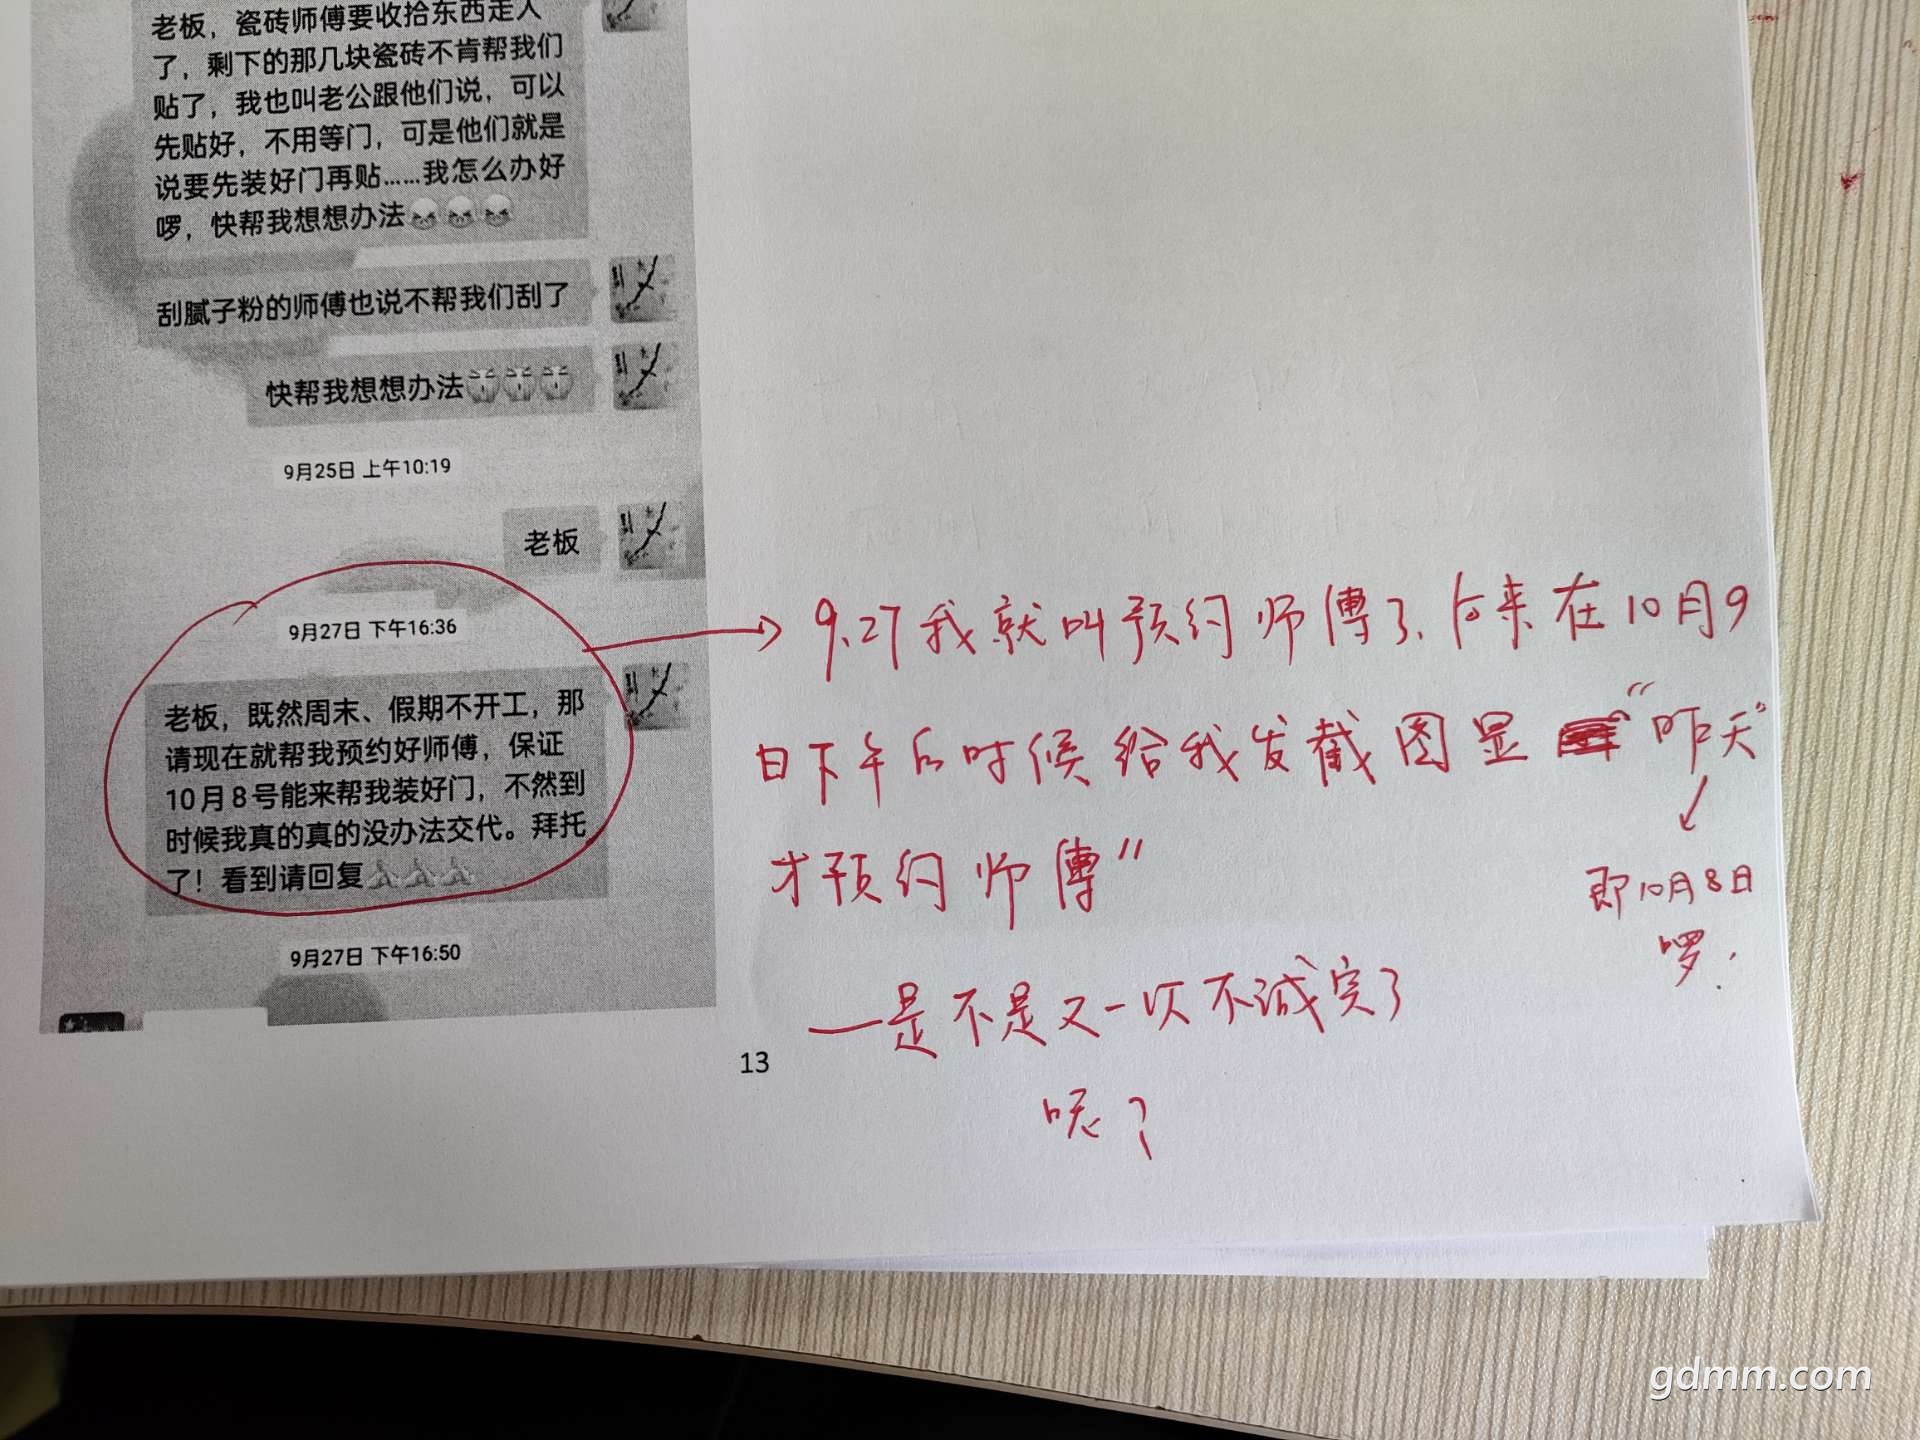 老板，瓷砖师傅要收拾东西走人
了，剩下的那几块瓷砖不肯帮我们
贴了，我也叫老公跟他们说，可以
先贴好，不用等门，可是他们就是
说要先装好门再贴……我怎么办好
啰，快帮我想想办法
刮腻子粉的师傅也说不帮我们刮了
快帮我想想办法
9月25日 上午10:19
老板
9月27日 下午16:36
老板，既然周末、假期不开工，那
请现在就帮我预约好师傅，保证
10月8号能来帮我装好门，不然到
时候我真的真的没办法交代。拜托
了！看到请回复
9月27日 下午16:50
9.27我就叫预约师傅了.后来在10月9
日下午后时候给我发截图显“昨天”
才预约师傅”
即10月8日
啰.
—是不是又一次不诚实了
呢？
13
gdmm.com